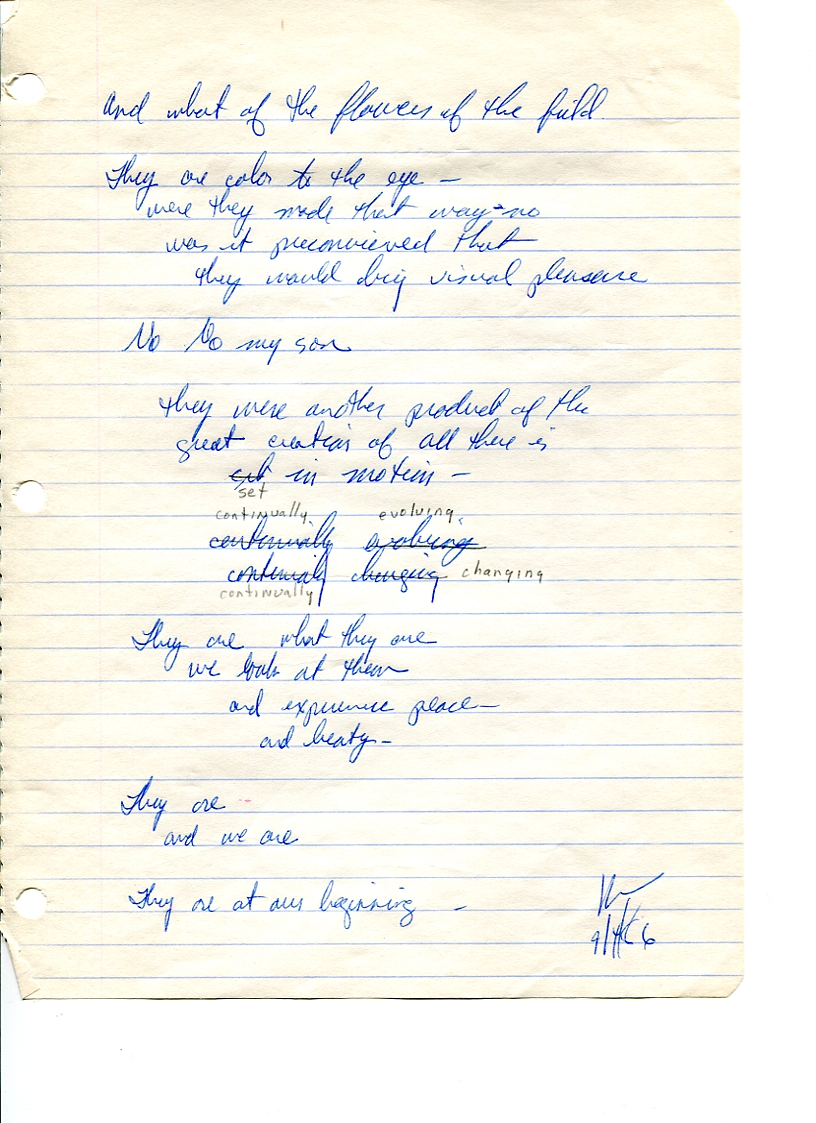 And what of the flowers of the field.
They are color to the eye —
were they made that way - no
was it preconvieved that
they would bring visual pleasure
No No my son
they were another product of the
great creation of all there is
set in motion —
set
continually evolving
continually evolving
continualy changing changing
continually
They are what they are
we look at them
and experience peace —
and beaty —
They are
and we are
They are at our beginning —